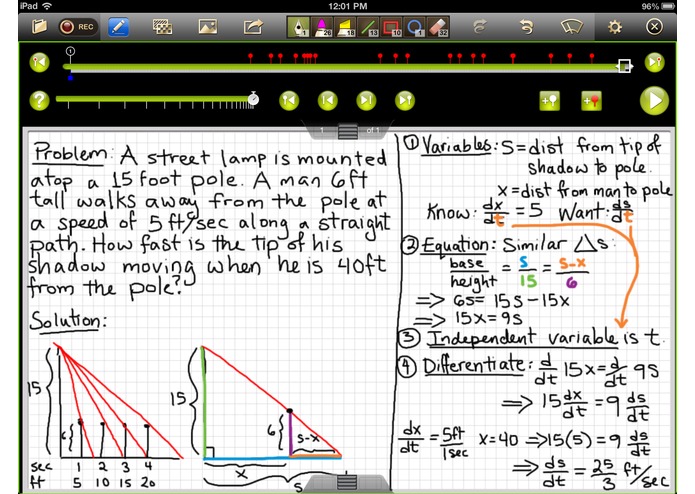 iPad
12:01 PM
96%
REC
1
26
18
13
10
1
32
1
?
1 of 1
Problem: A street lamp is mounted
atop a 15 foot pole. A man 6ft
tall walks away from the pole at
a speed of 5 ft/sec along a straight
path. How fast is the tip of his
shadow moving when he is 40ft
from the pole?
Solution:
15
6
sec 1 2 3 4
ft 5 10 15 20
15
6
s-x
x
s
① Variables: S=dist from tip of
shadow to pole.
x=dist from man to pole
Know: dx/dt = 5 Want: ds/dt
② Equation: Similar △s:
base/height = s/15 = s-x/6
⇒ 6s = 15s - 15x
⇒ 15x = 9s
③ Independent variable is t.
④ Differentiate: d/dt 15x = d/dt 9s
⇒ 15 dx/dt = 9 ds/dt
dx/dt = 5ft/1sec x=40 ⇒ 15(5) = 9 ds/dt
⇒ ds/dt = 25/3 ft/sec